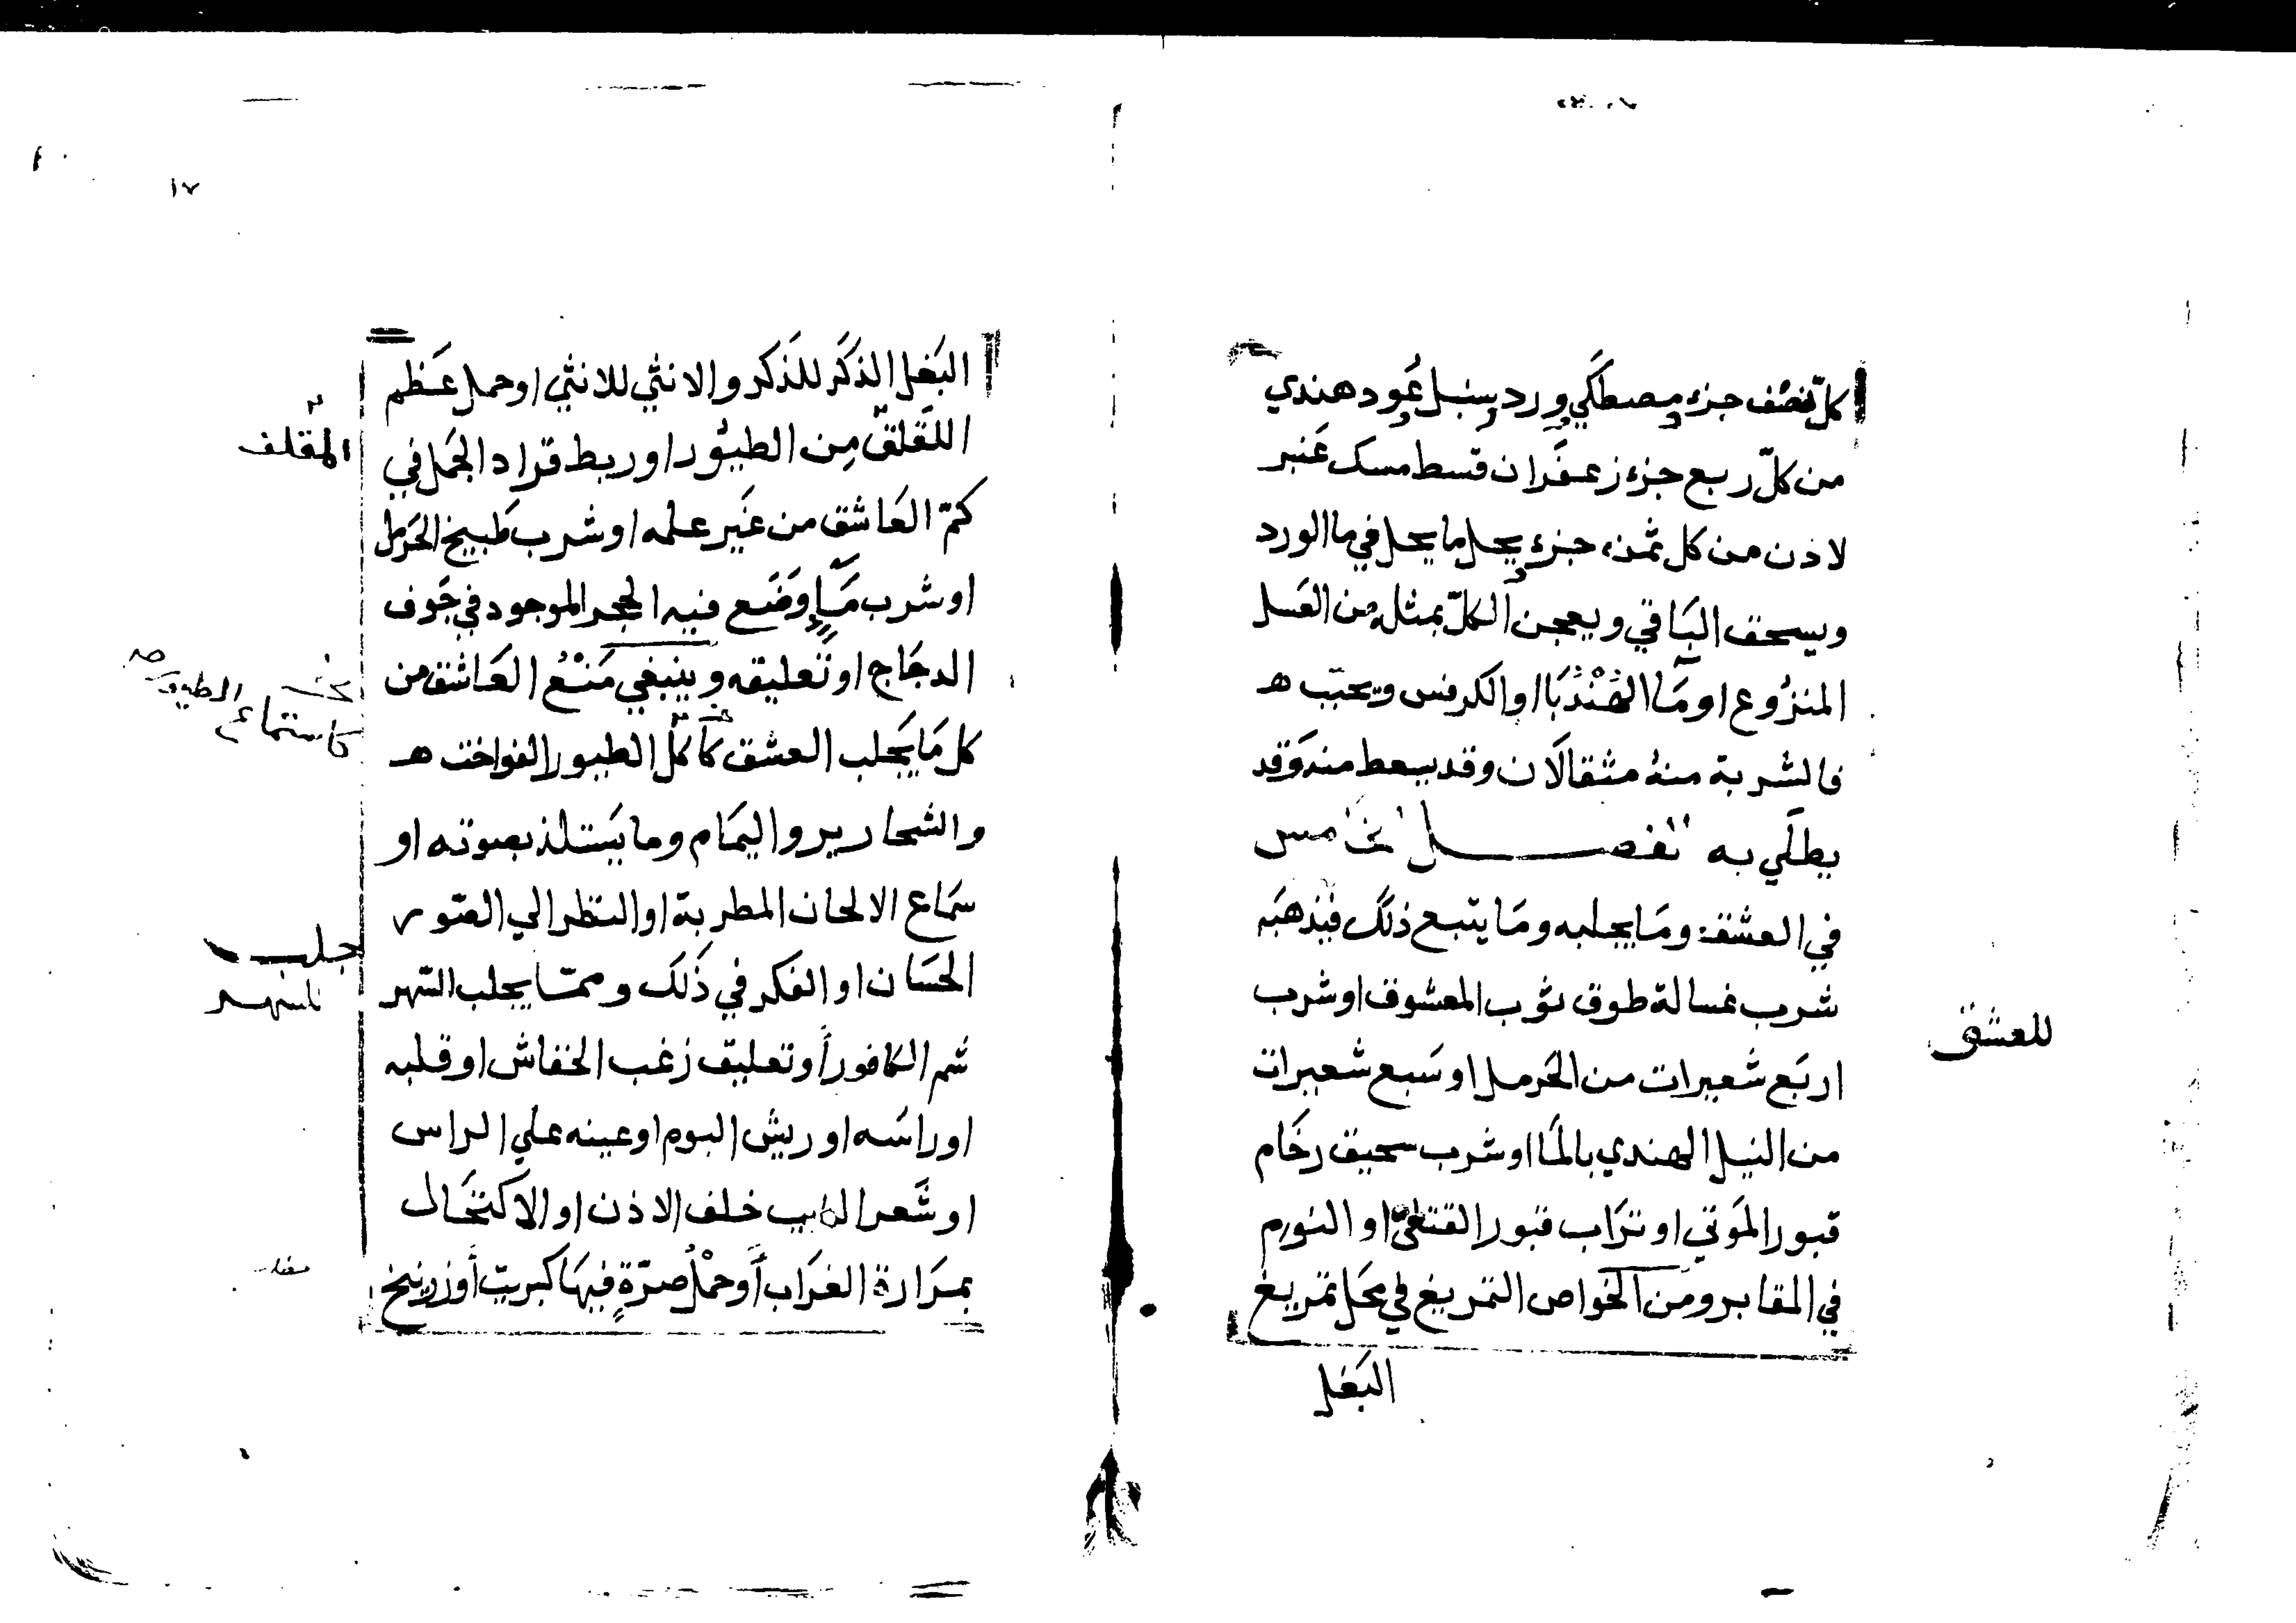 كلّ نصف جزء مصطَكي ورد سنبل عُود هندي
من كلّ ربع جزء زعفَران قسط مسك عَنبر
لاذن من كل ثمن جزء يحل ما يحل في ما الورد
ويسحق البَاقي ويعجن الكلّ بمثله من العَسل
المنزُوع او مَا الهُنْدُبَا او الكرفس ويحبّب هـ
فالشربة منهُ مثقالَان وقد يسعط منه وَقد
يطلَي به الفصل الخامس
في العشق وَمَا يجلبه ومَا يتبع ذلك فيذهبَه
شرب غسالة طوق ثوب المعشوق او شرب
اربَع شعيرات من الحَرمل او سَبع شعيرات
من النيل الهندي بالمَا او شرب سحيق رخَام
قبور المَوتي او تُرَاب قبور القتلي او النوم
في المقابر ومن الخَواص التمريغ في محَل تمريغ
البَغل
للعشق
١٧
البَغل الذكَر للذَكر والانثي للانثي او حمل عَظم
اللقَلق مِن الطيُور او ربط قراد الجَمل في
كمّ العَاشق من غَير علمه او شرب طَبيخ الحَرمل
او شرب مَآءٍ وَضَع فيه الحجر الموجود في جَوف
الدجَاج او تعليقه وينبغي مَنْعُ العَاشق من
كل مَا يَجلب العشق كاكل الطيور الفواخت هـ
والشحارير واليمَام وما يَستلذ بصوته او
سَماع الالحان المطربة او النظر الي الصّور
الحسَان او الفكر في ذَلك وممّا يجلب السّهر
شم الكافور أو تعليق زغب الخفاش او قلبه
او راسَه او ريش البوم او عينه علي الراس
او شَعر الدب خلف الاذن او الاكتحَال
بمرَارة الغرَاب أَو حمْل صرّةٍ فيهَا كبريت أو زرنيخ
كاستماع
الطيور
جلب
السهر